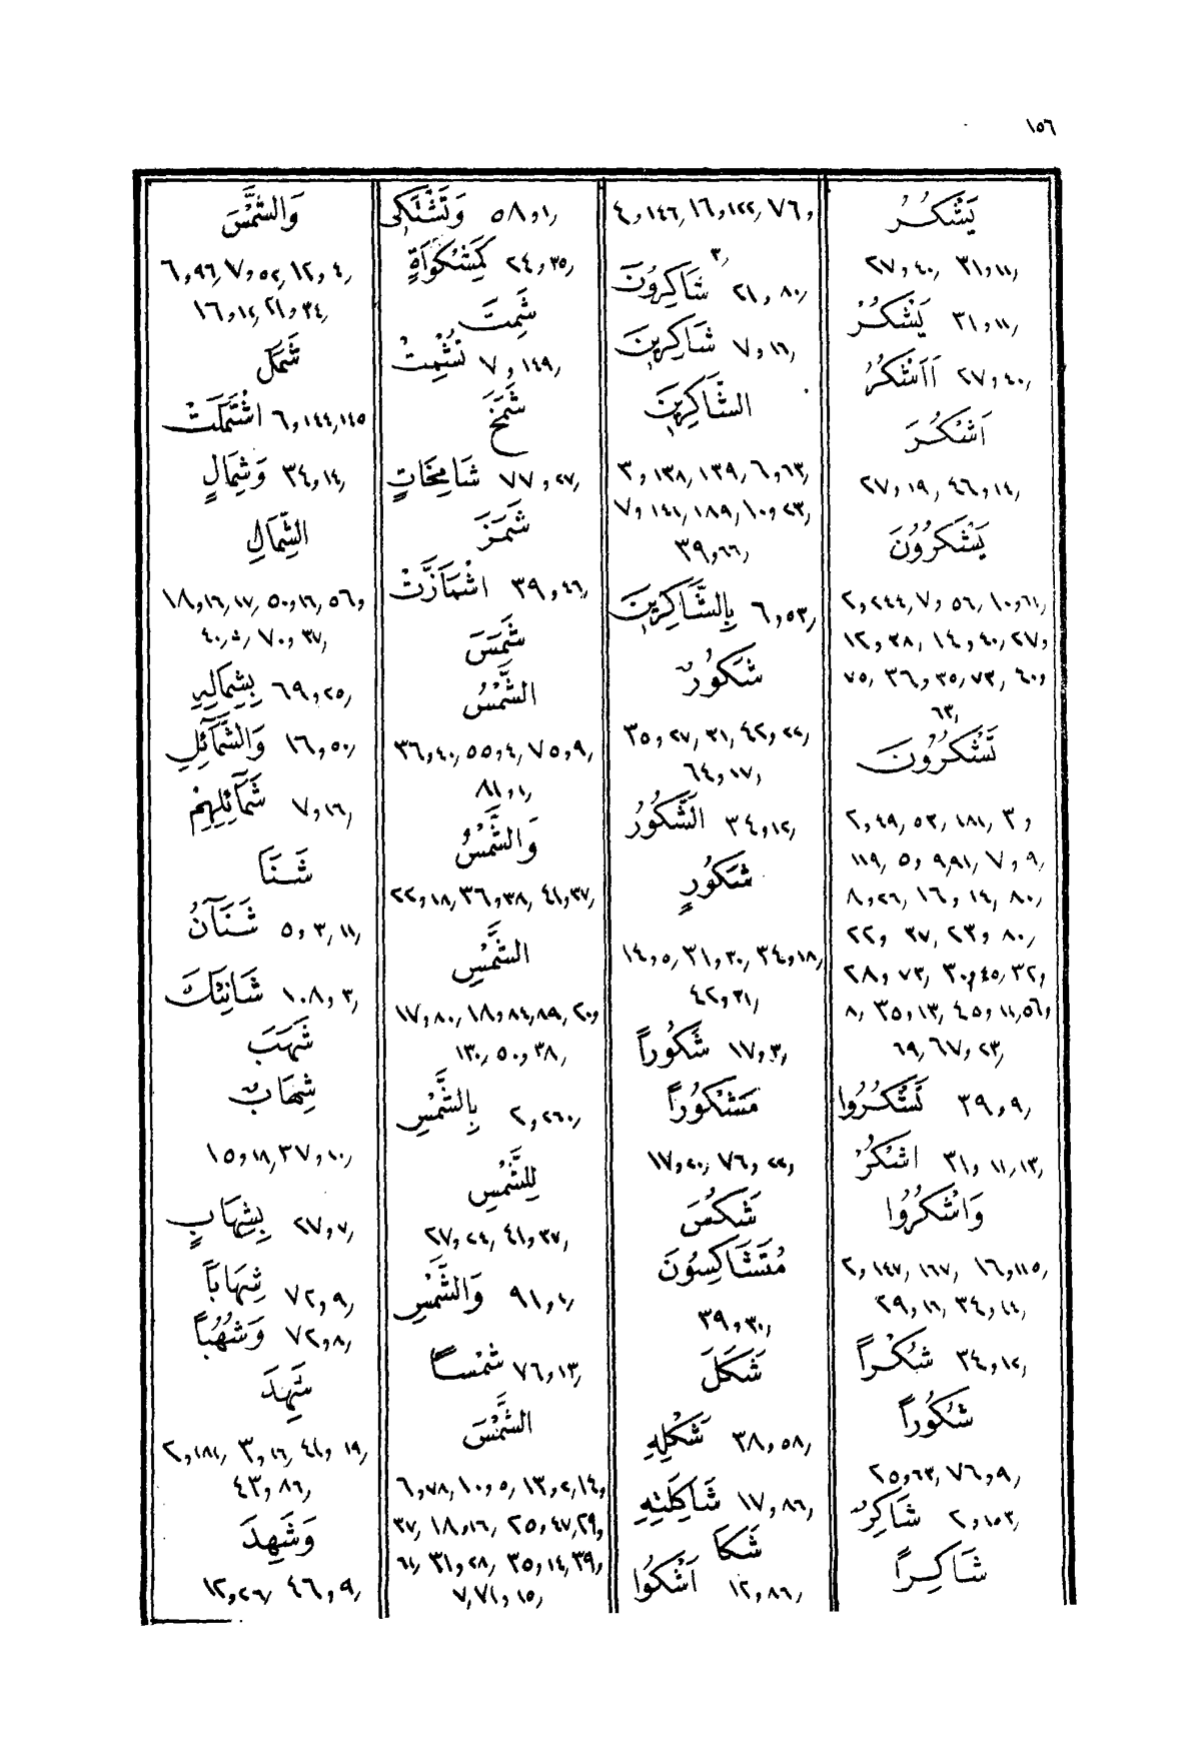 ١٥٦
يَشْكُرُ
٣١,١١, ٢٧,٤٠,
٣١,١١, يَشْكُرْ
٢٧,٤٠, ءَاَشْكُرُ
اَشْكُرَ
٤٦,١٤, ٢٧,١٩,
يَشْكُرُونَ
٢,٢٤٤, ٧,٥٦, ١٠,٦١,
١٢,٣٨, ١٤,٤٠, ٢٧,
٧٥, ٣٦,٣٥,٧٣, ٤٠,
٦٣,
تَشْكُرُونَ
٢,٤٩,٥٣,١٨١, ٣,
١١٩, ٥,٩,٩١, ٧,٩,
٨,٢٦, ١٦,١٤, ٨٠,
٢٢, ٣٧, ٢٣,٨٠,
٢٨,٧٣, ٣٠,٤٥, ٣٢,
٨, ٣٥,١٣, ٤٥,١١,٥٦,
٦٩, ٦٧,٢٣,
٣٩,٩, تَشْكُرُوا
٣١,١١,١٣, اشْكُرْ
وَاشْكُرُوا
٢,١٤٧,١٦٧, ١٦,١١٥,
٢٩,١٦, ٣٤,١٤,
٣٤,١٢, شُكْراً
شُكُوراً
٢٥,٦٣, ٧٦,٩,
٢,١٥٣, شَاكِرٌ
شَاكِراً
٤,١٤٦, ١٦,١٢٢, ٧٦,
٣,
٢١,٨٠, شَاكِرُونَ
٧,١٦, شَاكِرِينَ
الشَّاكِرِينَ
٣,١٣٨,١٣٩, ٦,٦٣,
٧,١٤١,١٨٩, ١٠,٢٣,
٣٩,٦٦,
٦,٥٣, بِالشَّاكِرِينَ
شَكُورٌ
٣٥,٢٧,٣١, ٤٢,٢٢,
٦٤,١٧,
٣٤,١٢, الشَّكُورُ
شَكُورٍ
١٤,٥, ٣١,٣٠, ٣٤,١٨,
٤٢,٣١,
١٧,٣, شَكُوراً
مَشْكُوراً
١٧,٢٠, ٧٦,٢٢,
شَكُسَ
مُتَشَاكِسُونَ
٣٩,٣٠,
شَكَلَ
٣٨,٥٨, شَكْلِهِ
١٧,٨٦, شَاكِلَتِهِ
شَكَا
١٢,٨٦, اَشْكُوا
٥٨,١, وَتَشْتَكِى
٢٤,٣٥, كَمِشْكَوٰاةٍ
شَمِتَ
٧,١٤٩, تُشْمِتْ
شَمَخَ
٧٧,٢٧, شَامِخَاتٍ
شَمَزَ
٣٩,٤٦, اشْمَاَزَّتْ
شَمَسَ
الشَّمْسُ
٣٦,٤٠, ٥٥,٤, ٧٥,٩,
٨١,١,
وَالشَّمْسُ
٢٢,١٨, ٣٦,٣٨, ٤١,٣٧,
الشَّمْسِ
١٧,٨٠, ١٨,٨٤,٨٩, ٢٠,
١٣٠, ٥٠,٣٨,
٢,٢٦٠, بِالشَّمْسِ
لِلشَّمْسِ
٢٧,٢٤, ٤١,٣٧,
٩١,١, وَالشَّمْسِ
٧٦,١٣, شَمْساً
الشَّمْسَ
٦,٧٨, ١٠,٥, ١٣,٢,١٤,
٣٧, ١٨,١٦, ٢٥,٤٧,٢٩,
٦١, ٣١,٢٨, ٣٥,١٤,٣٩,
٧,٧١,١٥,
وَالشَّمْسَ
٦,٩٦, ٧,٥٢, ١٢,٤,
١٦,١٢, ٢١,٣٤,
شَمَلَ
٦,١٤٤,١٤٥ اشْتَمَلَتْ
٣٤,١٤, وَشِمَالٍ
الشِّمَالِ
١٨,١٦,١٧, ٥٠,١٦, ٥٦,
٤٠,٥, ٧٠,٣٧,
٦٩,٢٥, بِشِمَالِهِ
١٦,٥٠, وَالشَّمَآئِلِ
٧,١٦, شَمَآئِلِهِمْ
شَنَا
٥,٣,١١, شَنَآنُ
١٠٨,٣, شَانِئَكَ
شَهَبَ
شِهَابٌ
١٥,١٨, ٣٧,١٠,
٢٧,٧, بِشِهَابٍ
٧٢,٩, شِهَاباً
٧٢,٨, وَشُهُباً
شَهِدَ
٢,١٨١, ٣,١٦, ٤١,١٩,
٤٣,٨٦,
وَشَهِدَ
١٢,٢٦, ٤٦,٩,